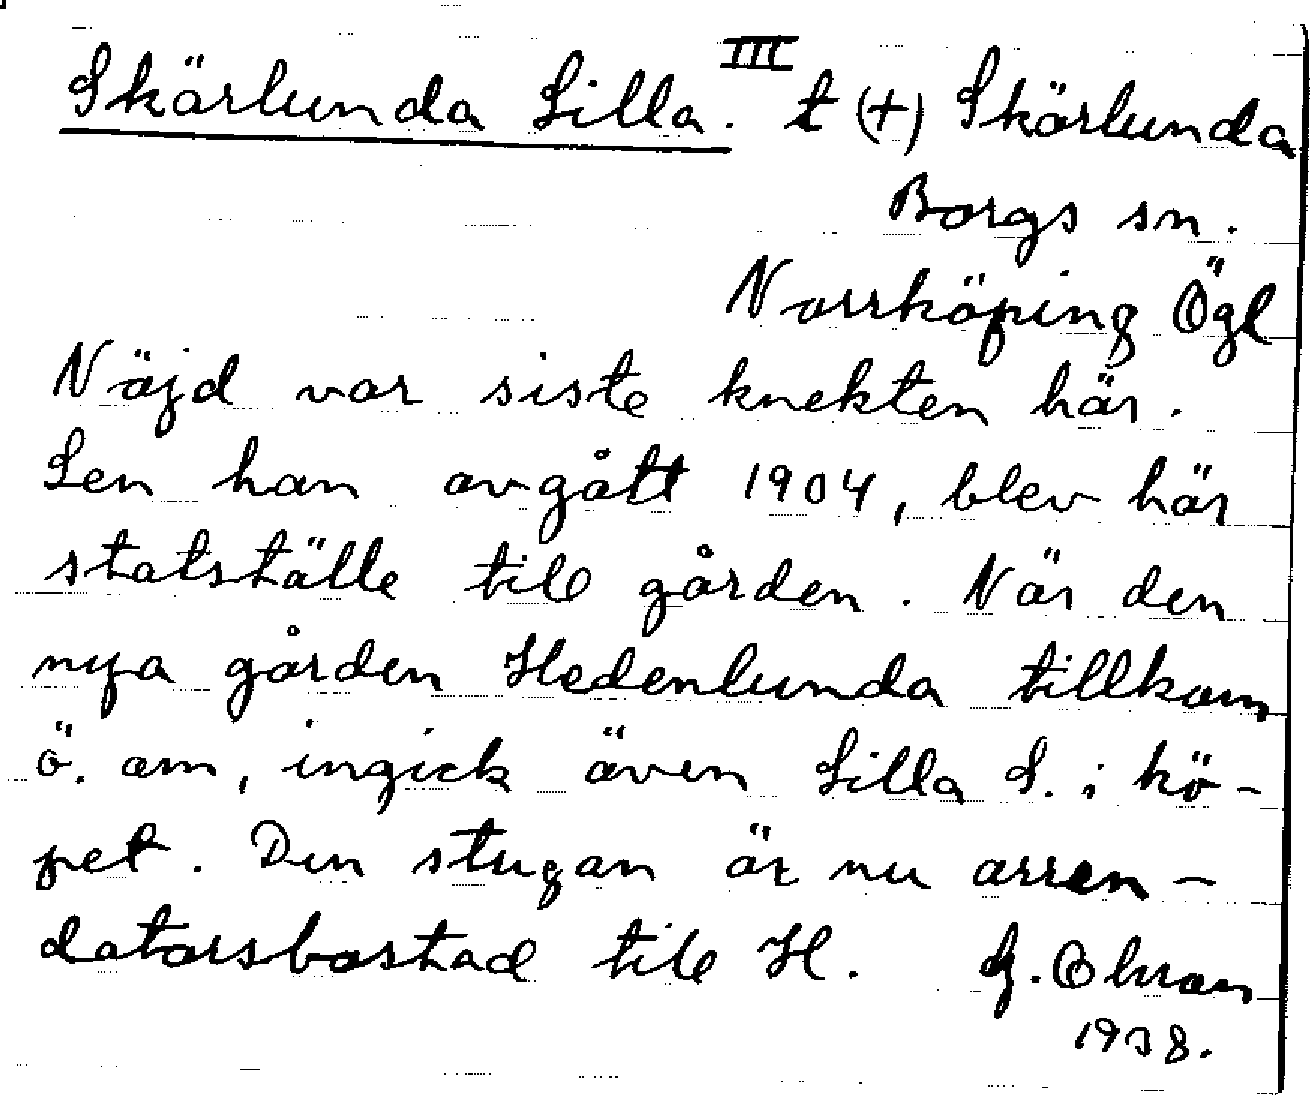 Skärlunda Lilla. III t (+) Skärlunda
Borgs sn.
Norrköping Ögl
Nöjd var siste knekten här.
Sen han avgått 1904, blev här
statställe till gården. När den
nya gården Hedenlunda tillkom
ö. om, ingick även Lilla S. i kö-
pet. Den stugan är nu arren-
datorsbostad till H. G.
1938.